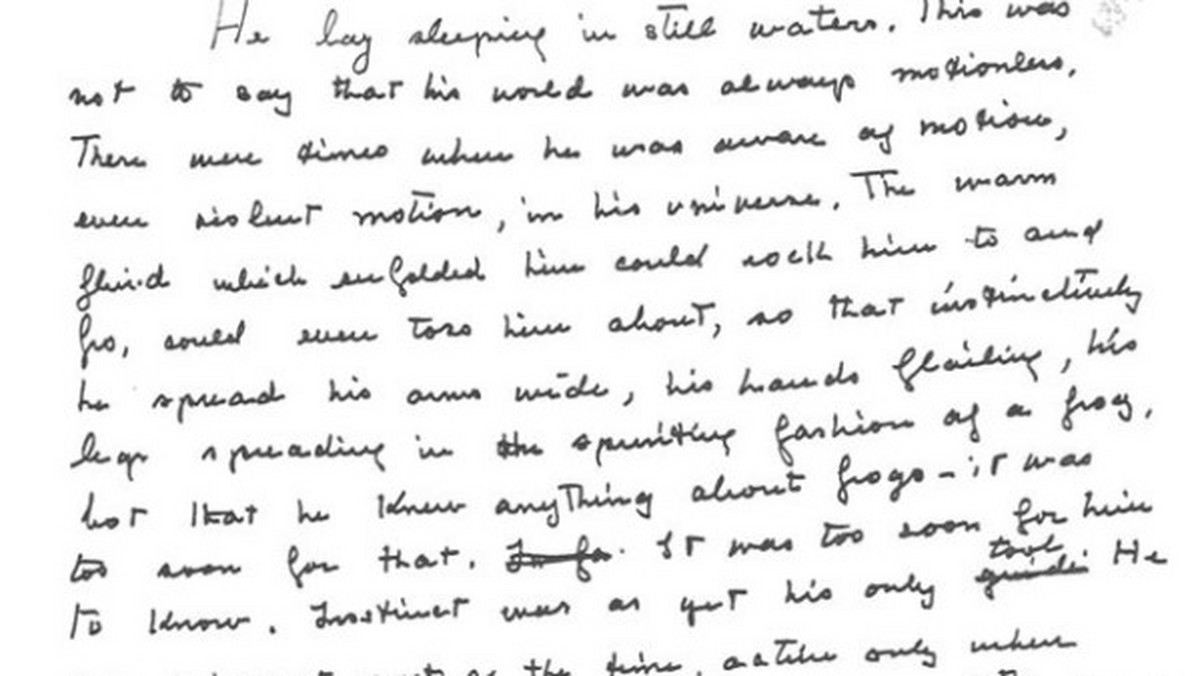 He lay sleeping in still waters. This was
not to say that his world was always motionless.
There were times when he was aware of motion,
even violent motion, in his universe. The warm
fluid which enfolded him could rock him to and
fro, could even toss him about, so that instinctively
he spread his arms wide, his hands flailing, his
legs spreading in the sprinting fashion of a frog.
Not that he knew anything about frogs - it was
too soon for that. In fa. It was too soon for him
to know. Instinct was as yet his only tool guide. He
of the time, active only when